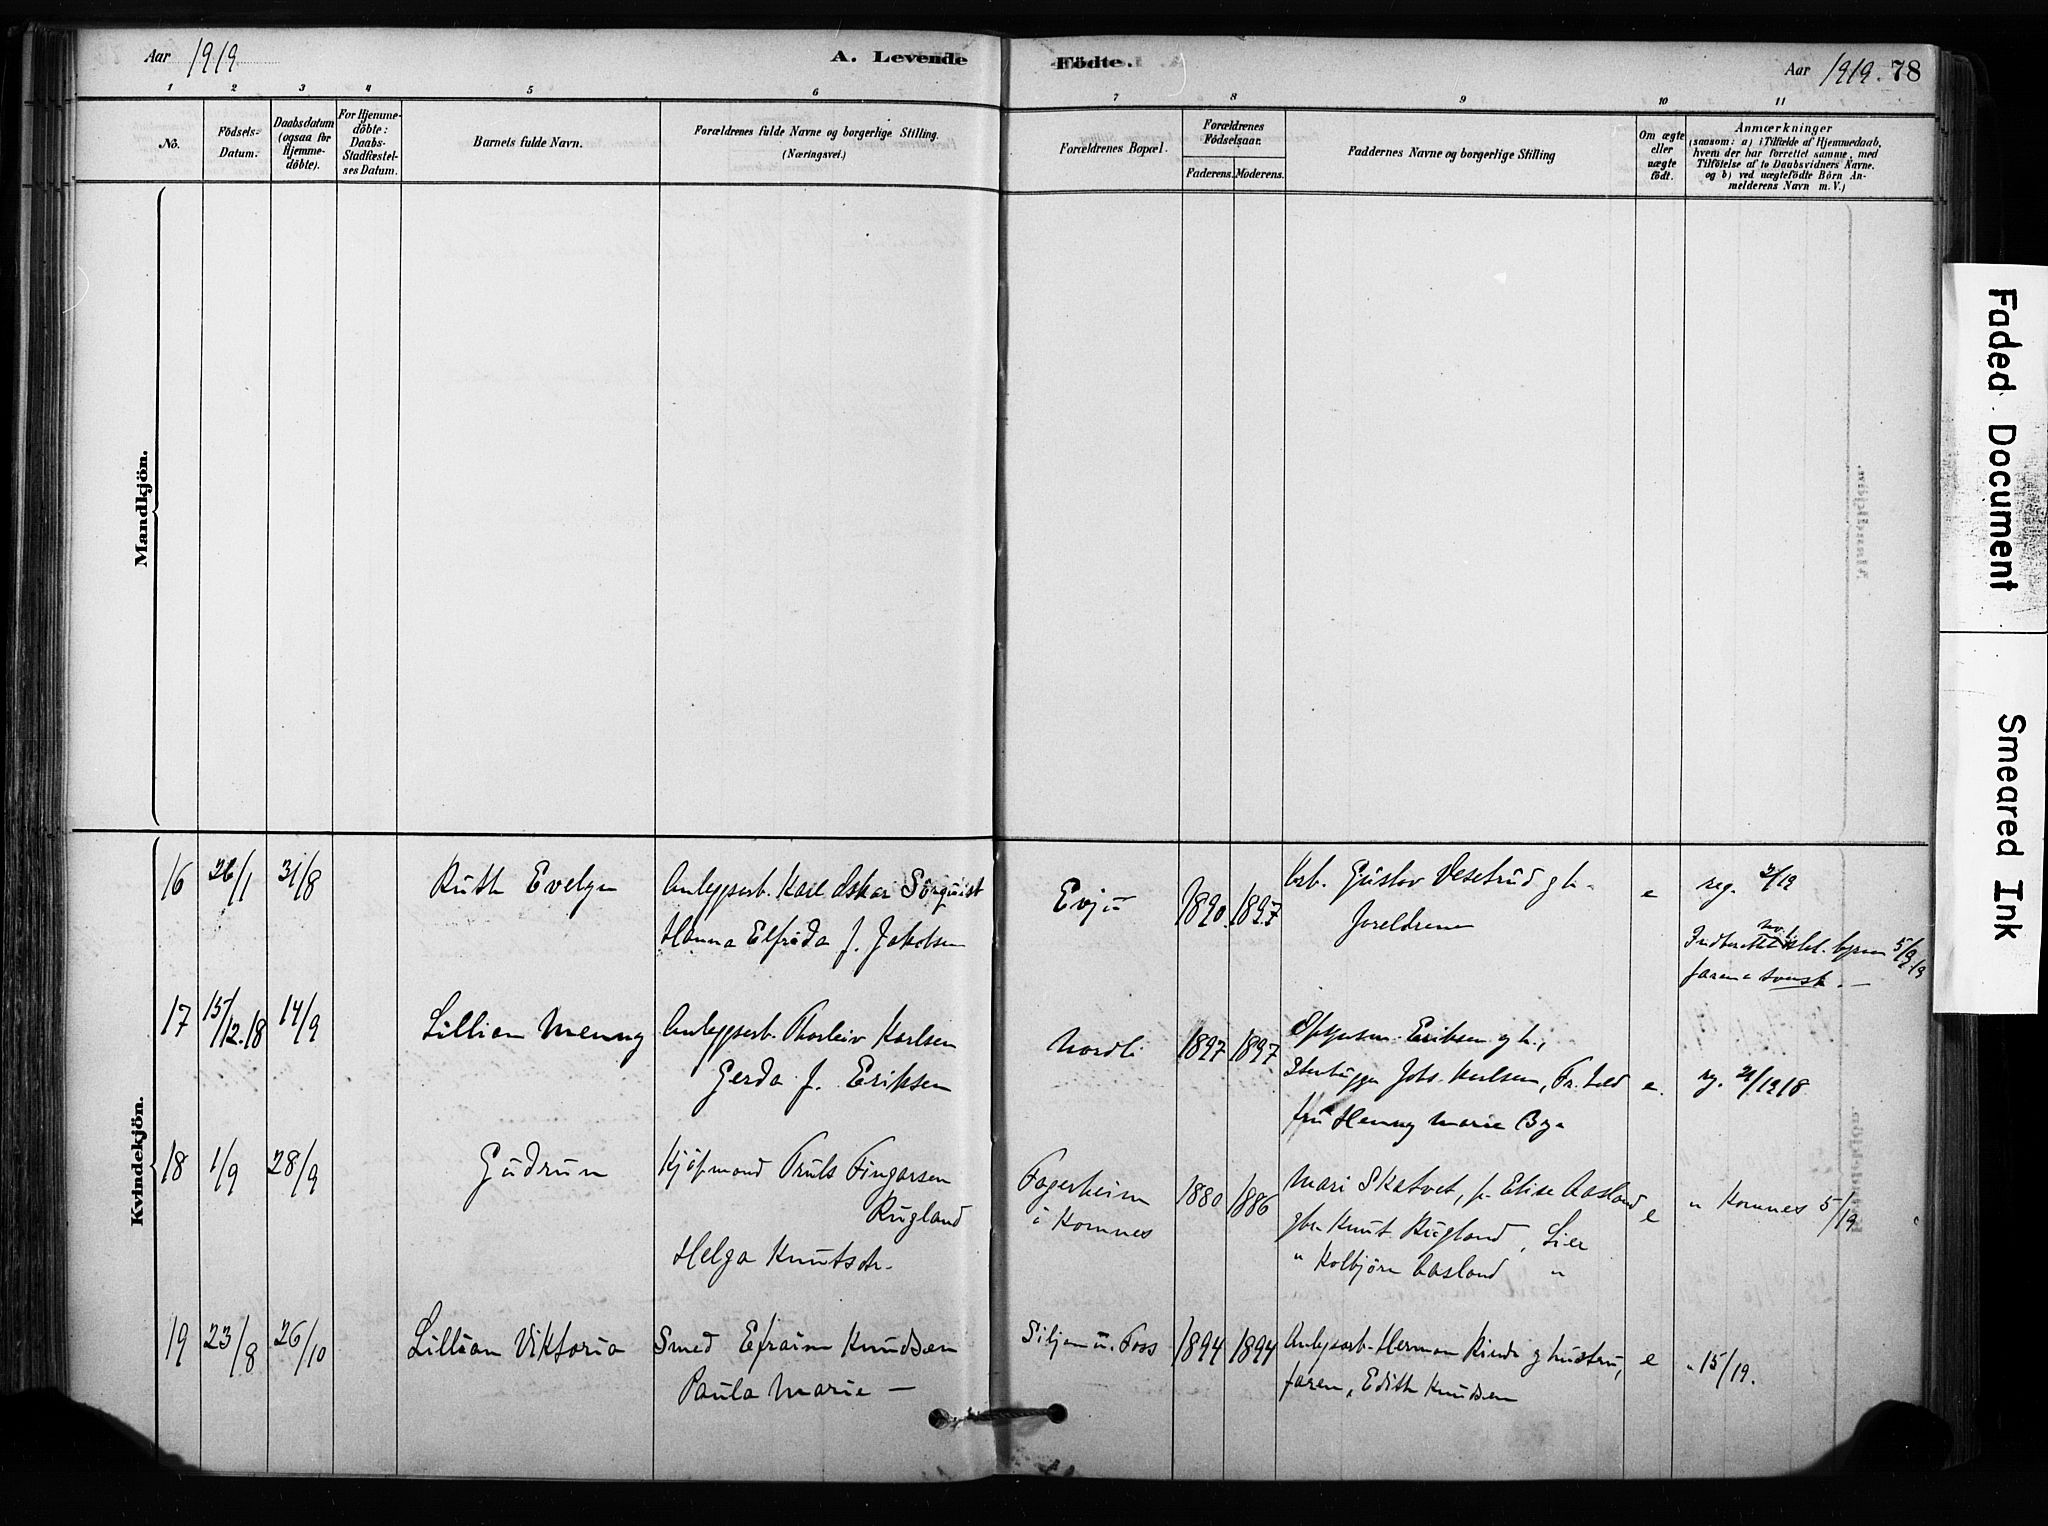 Aar 1919
A. Levende
Födte.
Aar 1919. 78
1 2 3 4 5 6 7 8 9 10 11
No.
Födsels-
Datum.
Daabsdatum
(ogsaa for
Hjemme-
döbte).
For Hjemme-
döbte:
Daabs-
Stadfæstel-
ses Datum.
Barnets fulde Navn.
Forældrenes fulde Navne og borgerlige Stilling.
(Næringsvei.)
Forældrenes Bopæl.
Forældrenes
Födselsaar.
Faderens. Moderens.
Faddernes Navne og borgerlige Stilling
Om ægte
eller
uægte
födt.
Anmærkninger
(saasom: a) i Tilfælde af Hjemmedaab,
hvem der har forrettet samme, med
Tilföielse af to Daabsvidners Navne.
og b) ved uægtefödte Börn An-
melderens Navn m. V.)
Mandkjön.
Kvindekjön.
16 26/1 31/8 Ruth Evelyn
Anleggsarb. Karl Oskar Sörquist
Hanna Elfrida f. Jakobsen
Evju 1890. 1897
Arb. Gustav Vesetrud g h.
foreldrene
e reg. 2/19
faren e svensk. —
17 15/12.18 14/9 Lillian Menny
Anleggsarb. Thorleiv Karlsen
Gerda f. Eriksen
Nordli 1897 1897
Eriksen g h.,
Johs. Karlsen,
fru Henny Marie
e. rg. 21/1918
18 1/9 28/9 Gudrun
Kjöpmand Truls Fingarsen
Rugland
Helga Knutsdtr.
Fagerheim
i Komnes
1880 1886
Mari Skatvet, p. Elise Aasland
gbr. Knut Rugland, Lier
" Kolbjörn Aasland "
e " Komnes 5/19
19 23/8 26/10 Lillian Viktoria
Smed Efraim Knudsen
Paula Marie —
Siljan u. Foss 1894 1894
Anlegsarb. Herman Rinde g hustru,
faren, Edith Knudsen
e " 15/19.
Faded Document
Smeared Ink